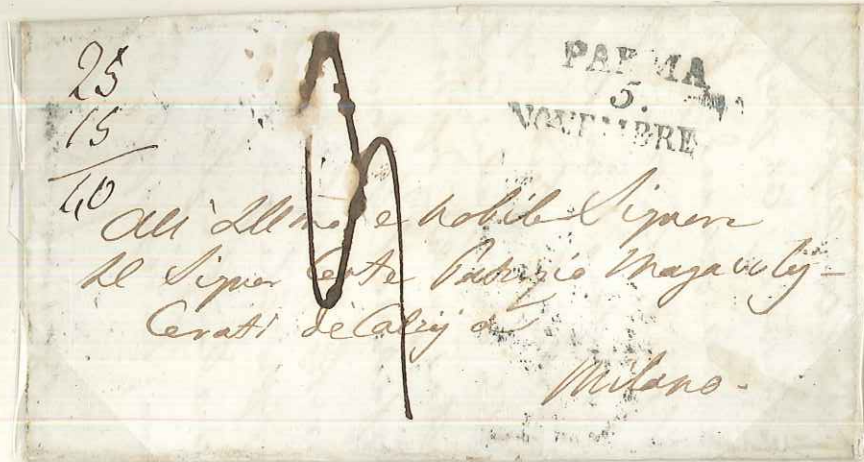 25
15
40
PARMA
5.
NOVEMBRE
All' Illmo e Nobile Signore
Il Signor Conte Patrizio Magawly-
Cerati de Calry
Milano.